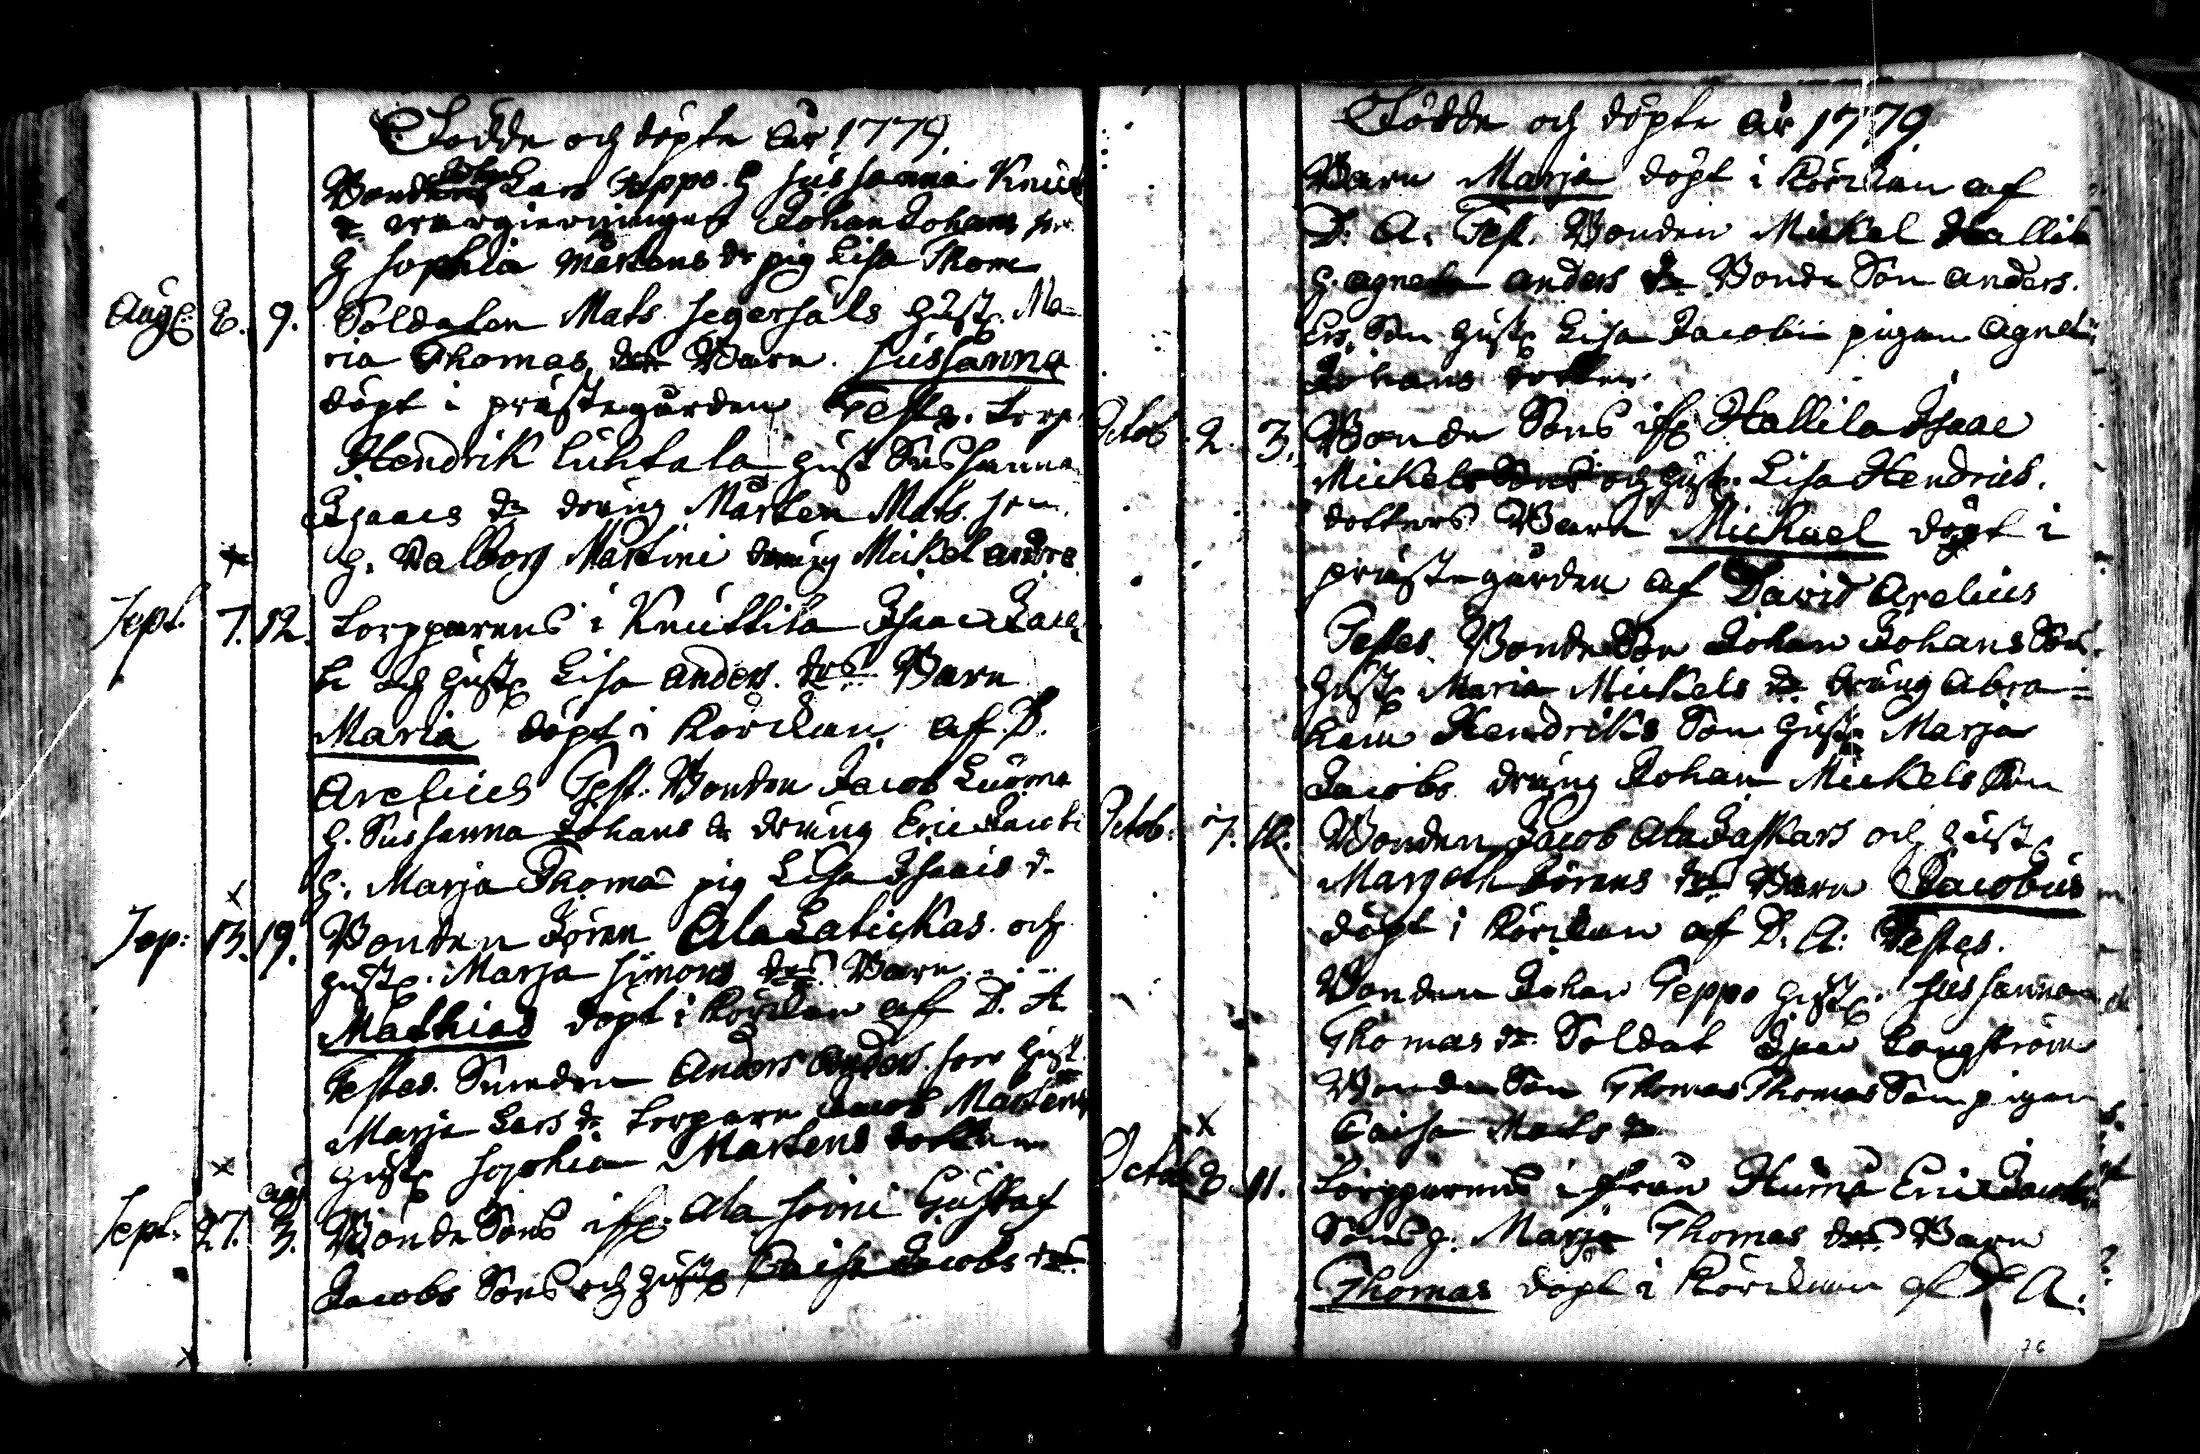 Födde och döpte år 1779.
Bonden Lars Teppo. H Sussanna Knuts
dr Johan Johans son
H Sophia Mårtens dr pig Lisa Thom
Aug. 8. 9. Soldaten Mats Segersäls Hust. Ma-
ria Thomas drs Barn. Sussanna
döpt i prästegården Testes. Torp.
Hendrik Luhtala Hust Sussanna
Isaacs dr dräng Mårten Mats son.
H. Valborg Martini dräng Mickel Andrs
Sept. 7. 12. Torpparens i Knuttila Isaac Jaco
bi och Hust Lisa Anders. drs Barn
Maria döpt i Körckan af D.
Arelius Test. Bonden Jacob Luoma
H. Sussanna Johans dr dräng Eric Jacobi
H. Marja Thomæ pig Lisa Isacis d.
Sep: 13. 19. Bonden Jören Ala Latickas och
Hust. Marja Simons drs Barn
Mathias döpt i Körckan af D. A.
Testes. Smeden Anders Anders son Hust
Marja Lars dr torpare Jacob Mårtens
Hust Sophia Mårtens dotter
Sept. 27. Aug 3. Bonde Sons ifr. Ala Soini Gustaf
Jacobs Sons och Hust Caisa Jacobs drs
Födde och döpte år 1779
Barn Marja döpt i Körckan af
D. A. Test. Bonden Mickel Hallila
H. Agneta Anders dr Bonde Son Anders.
Ers. Son Hust Lisa Jacobi pigan Agneta
Johans dotter.
Octob. 2. 3. Bonde Sons ifr Hallila Isaac
Mickels Sons och Hust. Lisa Hendrics.
dotters Barn Michael döpt i
prästegården af David Arelius
Testes. Bonde Son Johan Johans Son.
Hust Maria Mickels dr dräng Abra=
ham Hendriks Son Hust Marja
Jacobs dräng Johan Mickels Son
Octob: 7. 10. Bonden Jacob Ala Jaskars och Hust
Margeth Jörens drs Barn Jacobus
döpt i Körckan af D. A: Testes.
Bonden Johan Teppo Hust. Sussanna
Thomas dr Soldat Isac Langström
Bonde Son Thomas Thomas Son pigan
Caisa Mats dr
Octob 8. 11. Torpparens ifrån Huma Eric Jacobs
Sons H. Marja Thomas drs Barn
Thomas döpt i Körckan af D A.
76